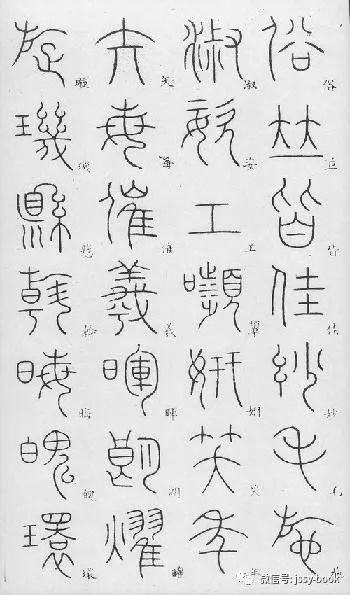 俗並皆佳妙毛施
淑姿工顰妍笑年
矢每催羲暉朗曜
璇璣懸斡晦魄環
微信号: jssy-book